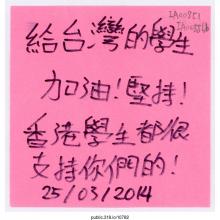 IA00851
給台灣的學生
加油!堅持!
香港學生都很
支持你們的!
25/03/2014
public.318.io/10782